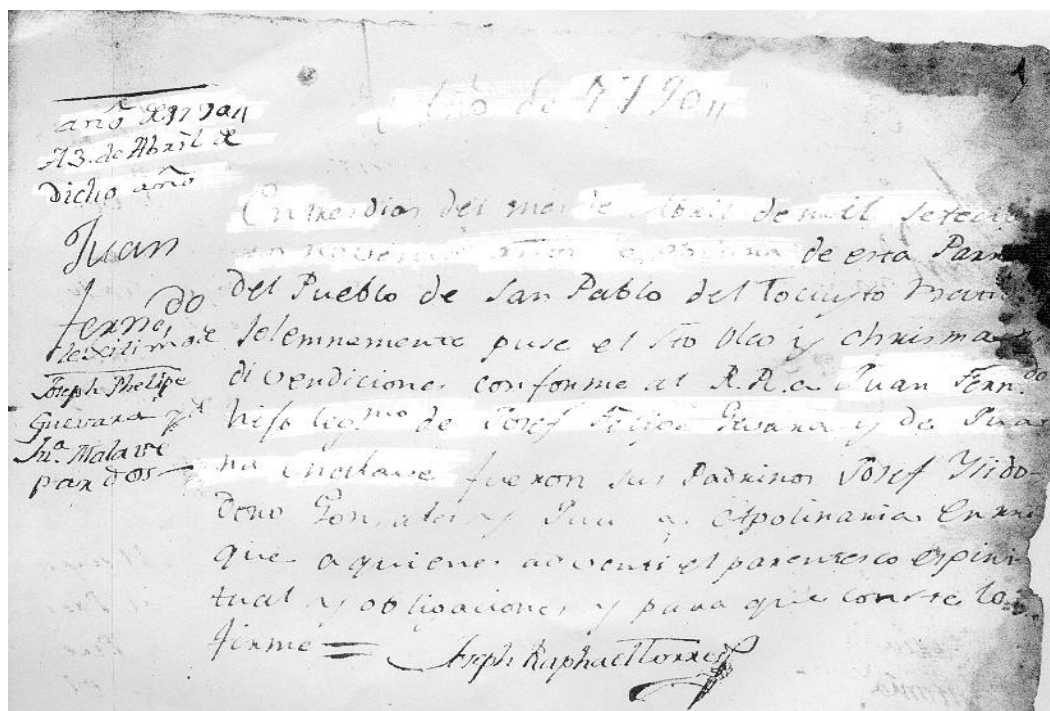 Año de 1790,,
año de 1790,,
A 3. de Abril de
Dicho año
Juan
Fernᵈᵒ
lexitimo de
Joseph Phelipe
Guevara y
Juᵃ Malave
pardos
En tres dias del mes de Abril de mil setecien
años de esta Parr
del Pueblo de San Pablo del Tocuyto
solemnemente puse el Sᵗᵒ Oleo y Chrisma
di vendiciones conforme al R. R. a Juan Fernᵈᵒ
hijo legᵐᵒ de Josef Felipe Guvara y de Jua
na Malave fueron sus Padrinos Josef Ysido
doro Gonsales y Apolinaria Enrri
que a quienes adverti el parentesco espiri
tual y obligaciones y para que conste lo
firme =
Joseph Raphael Torres